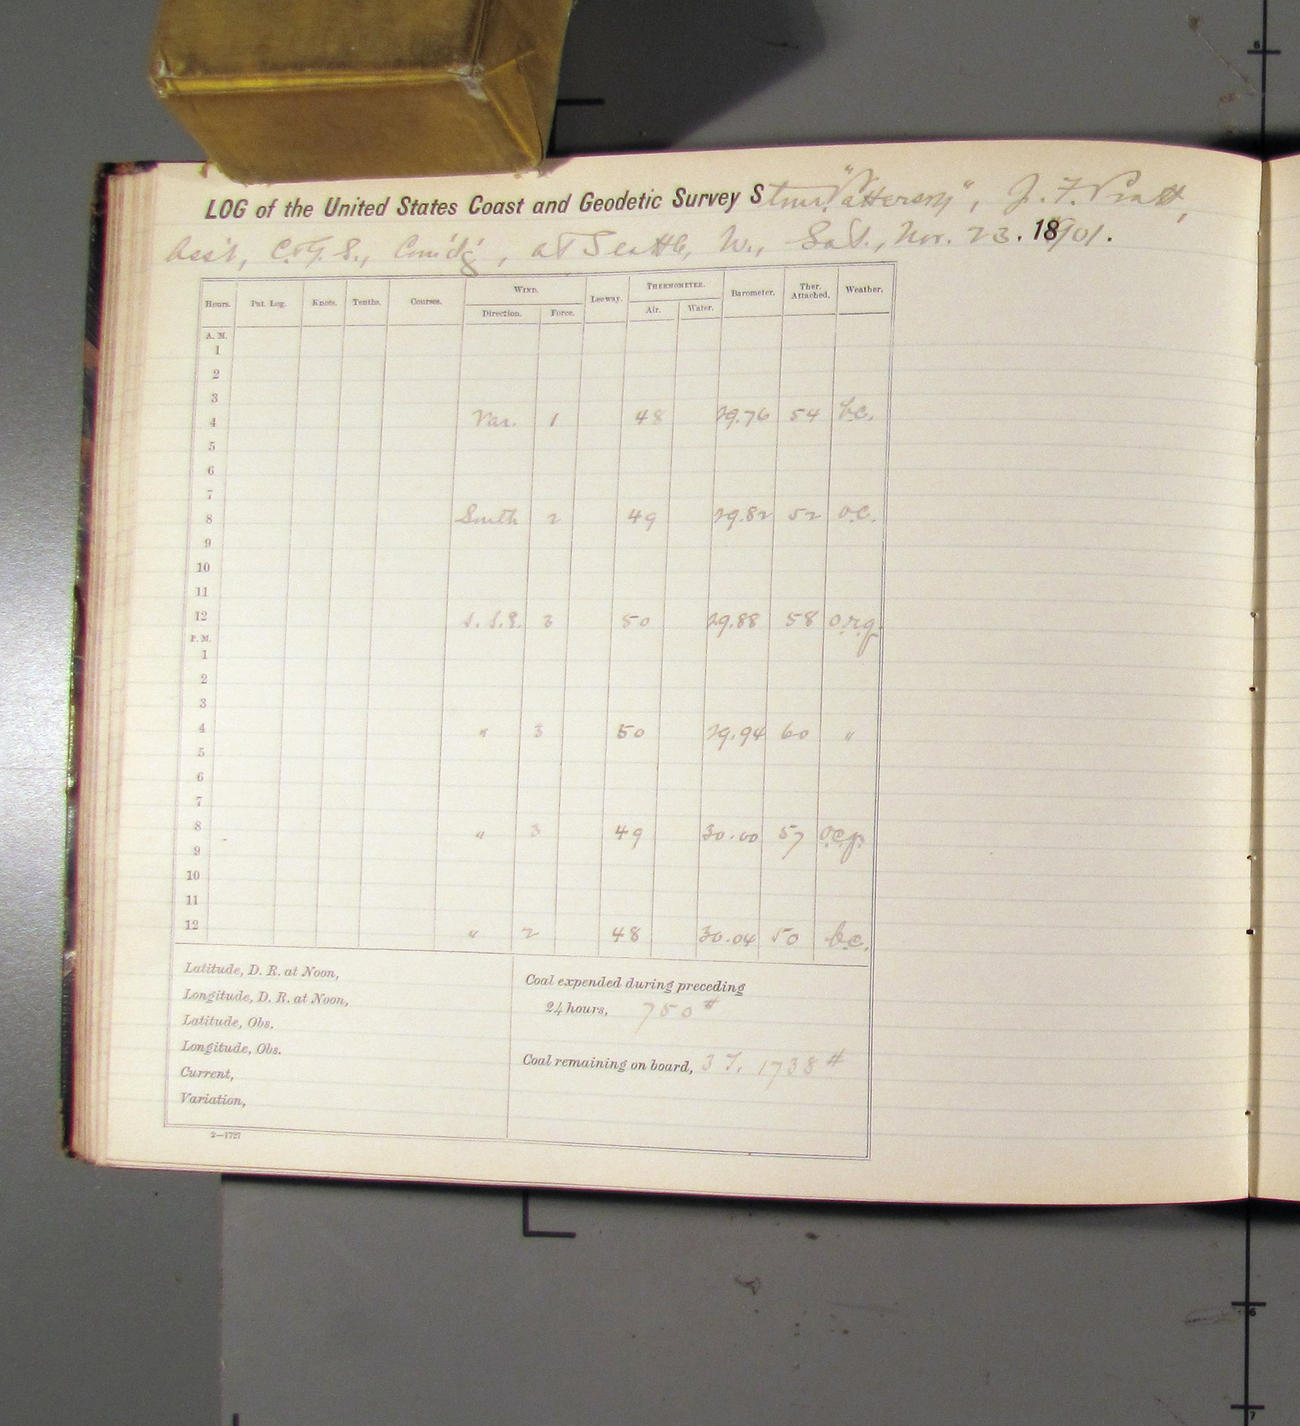 LOG of the United States Coast and Geodetic Survey Stmr. "Patterson", J. F. Pratt,
Ass't, C. & G. S., Com'd'g, at Seattle, W., Sat., Nov. 23. 1901.
Hours. Pat. Log. Knots. Tenths. Courses. WIND. Leeway. THERMOMETER. Barometer. Ther. Attached. Weather.
Direction. Force. Air. Water.
A. M.
1
2
3
4 Var. 1 48 29.76 54 b.c.
5
6
7
8 South 2 49 29.82 52 o.c.
9
10
11
12 S.S.E. 3 50 29.88 58 o.r.q.
P. M.
1
2
3
4 " 3 50 29.94 60 "
5
6
7
8 " 3 49 30.00 57 o.c.p.
9
10
11
12 " 2 48 30.04 50 b.c.
Latitude, D. R. at Noon,
Longitude, D. R. at Noon,
Latitude, Obs.
Longitude, Obs.
Current,
Variation,
Coal expended during preceding
24 hours, 750 #
Coal remaining on board, 3 T. 1738 #
2—1727
6
6
7